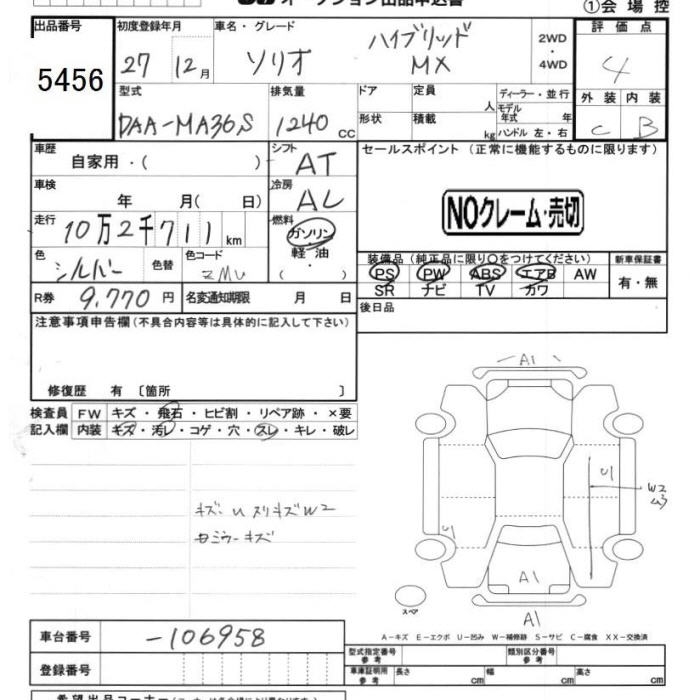 オークション出品申込書
①会場控
出品番号 5456
初度登録年月 27 12月
車名・グレード ソリオ ハイブリッド MX
2WD・4WD
評価点 4
外装 C 内装 B
型式 DAA-MA36S
排気量 1240 CC
ドア 定員 人
形状 積載 kg
ディーラー・並行
モデル年式 年
ハンドル 左・右
車歴 自家用・( )
シフト AT
セールスポイント(正常に機能するものに限ります)
車検 年 月( 日)
冷房 AC
NOクレーム・売切
走行 10万2千711km
燃料 ガソリン 軽油 ・ ( )
色 シルバー 色替 色コード ZMU
装備品(純正品に限り○をつけてください)
PS PW ABS エアB AW
SR ナビ TV カワ
新車保証書 有・無
R券 9.770円
名変通知期限 月 日
後日品
注意事項申告欄(不具合内容等は具体的に記入して下さい)
修復歴 有 〔箇所 〕
検査員記入欄
FW キズ・飛石・ヒビ割・リペア跡・×要
内装 キズ・汚レ・コゲ・穴・スレ・キレ・破レ
キズ U スリキズ W2
ミラーキズ
A1
U1
W2
U1
A1
スペア
A1
A-キズ E-エクボ U-凹み W-補修跡 S-サビ C-腐食 XX-交換済
車台番号 -106958
登録番号
型式指定番号 参考
類別区分番号 参考
車庫証明用 参考 長さ cm 幅 cm 高さ cm
希望出品コーナー